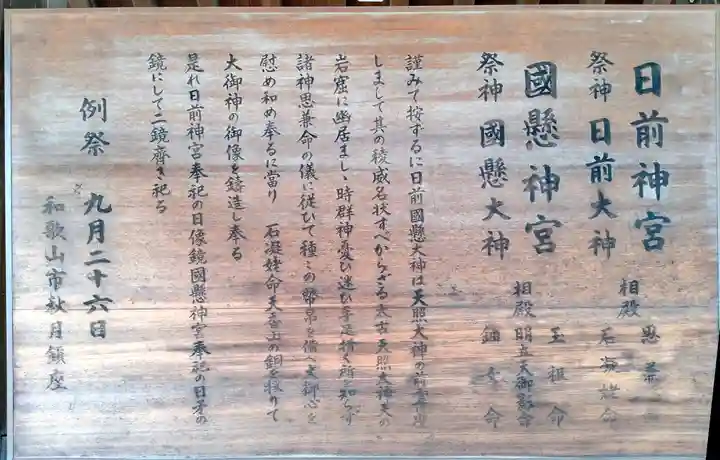 日前神宮
祭神 日前大神
相殿 思兼
石凝姥命
國懸神宮
祭神 國懸大神
相殿 玉祖命
明立天御影命
鈿女命
謹みて按ずるに日前國懸大神は天照大神の前霊
しまして其の稜威名状すべからざる太古天照大神天の
岩窟に幽居ましゝ時群神憂ひ迷ひ手足措く所を知らず
諸神思兼命の儀に従ひて種々の幣帛を備へ大御心を
慰め和め奉るに當り 石凝姥命天香山の銅を採りて
大御神の御像を鋳造し奉る
是れ日前神宮奉祀の日像鏡國懸神宮奉祀の日矛の
鏡にして二鏡齊き祀る
例祭 九月二十六日
和歌山市秋月鎮座